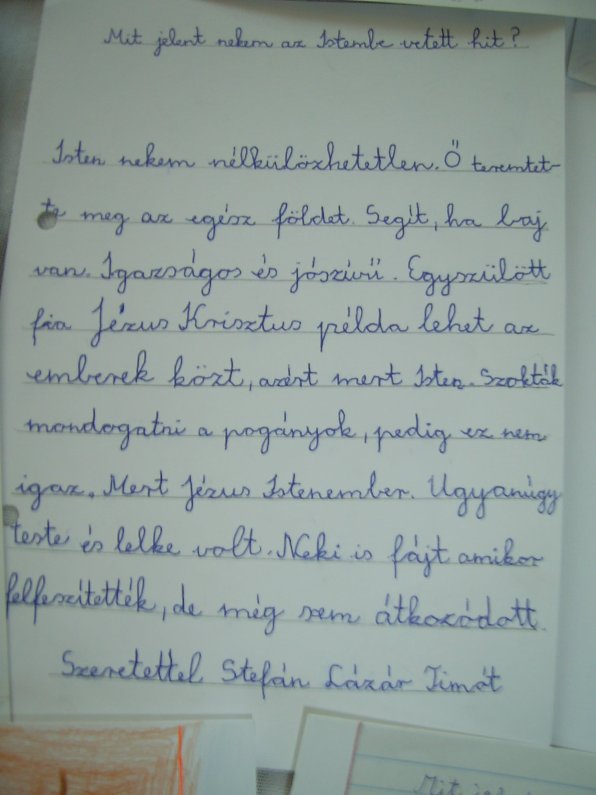 Mit jelent nekem az Istembe vetett hit?
Isten nekem nélkülözhetetlen. Ő teremtet-
te meg az egész földet. Segít, ha baj
van. Igazságos és jószívű. Egyszülött
fia Jézus Krisztus példa lehet az
emberek közt, azért mert Isten. Szokták
mondogatni a pogányok, pedig ez nem
igaz. Mert Jézus Istenember. Ugyanúgy
teste és lelke volt. Neki is fájt amikor
felfeszítették, de még sem átkozódott.
Szeretettel Stefán Lázár Timót
Mit